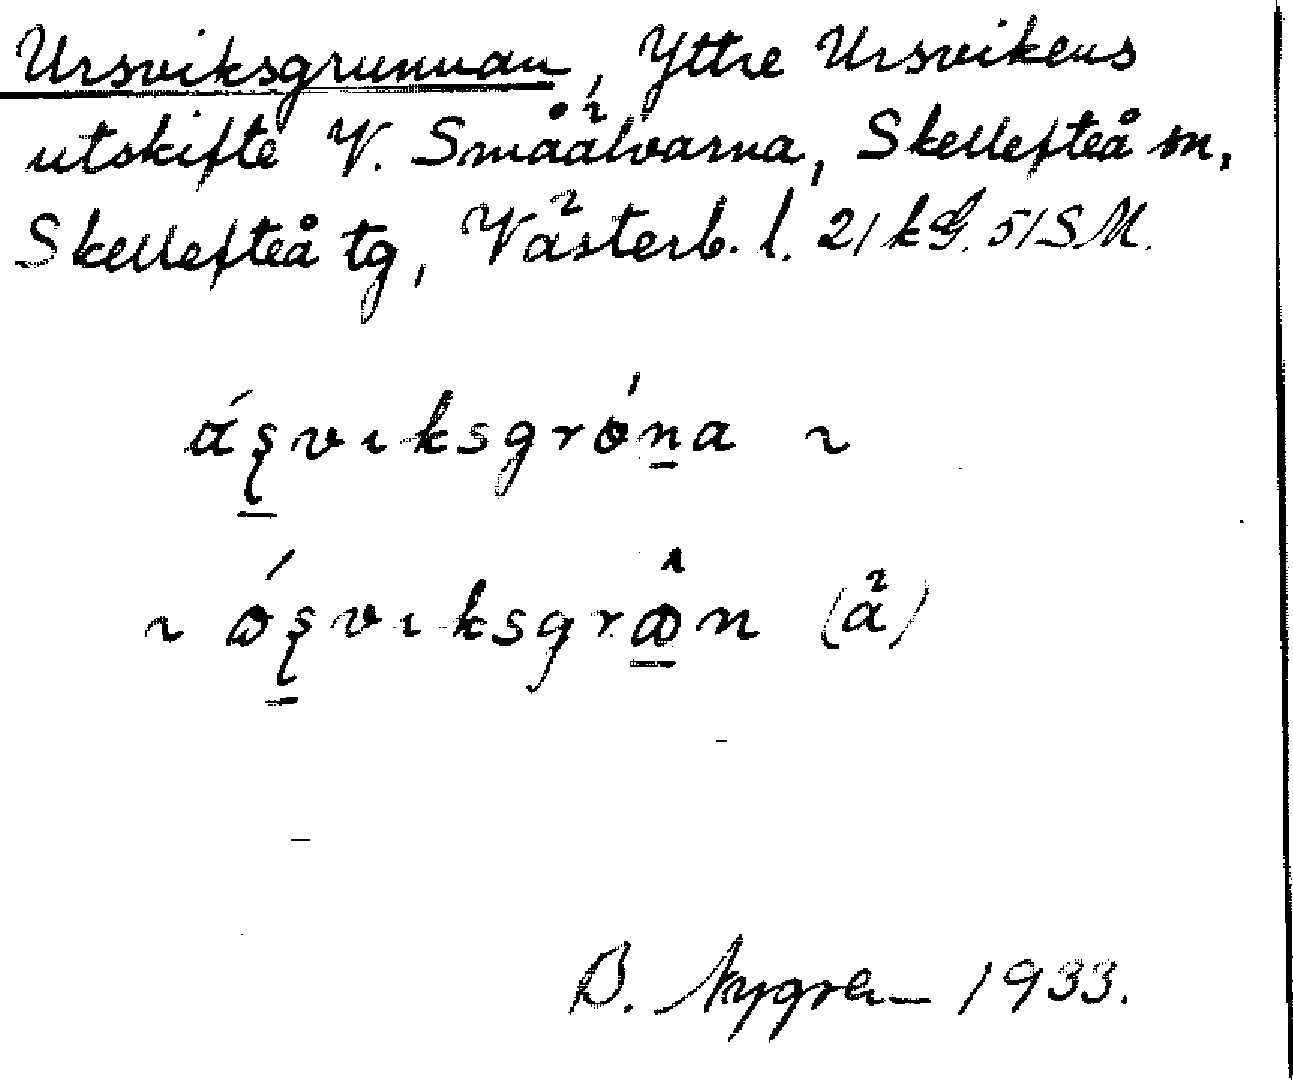 Ursviksgrunnan, Yttre Ursvikens
utskifte V. Småälvarna, Skellefteå sn,
Skellefteå tg, Västerb. l. 21 kG. 51 S M.
ásvıksgróna ~
~ ǿsvıksgrôn (ä)
B. Nygren 1933.